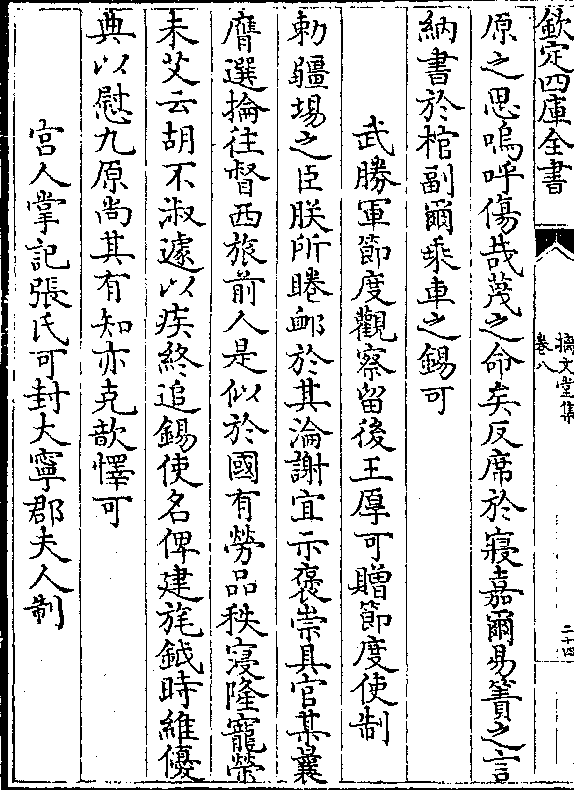 欽定四庫全書
摛文堂集
卷八
二十四
原之思嗚呼傷哉蔑之命矣反席於寢嘉爾易簀之言
納書於棺副爾乘車之錫可
武勝軍節度觀察留後王厚可贈節度使制
勅疆場之臣朕所睠䘏於其淪謝宜示褒崇具官某曩
膺選掄往督西旅前人是似於國有勞品秩寖隆寵榮
未艾云胡不淑遽以疾終追錫使名俾建旄鉞時維優
典以慰九原尚其有知亦克歆懌可
宮人掌記張氏可封大寧郡夫人制